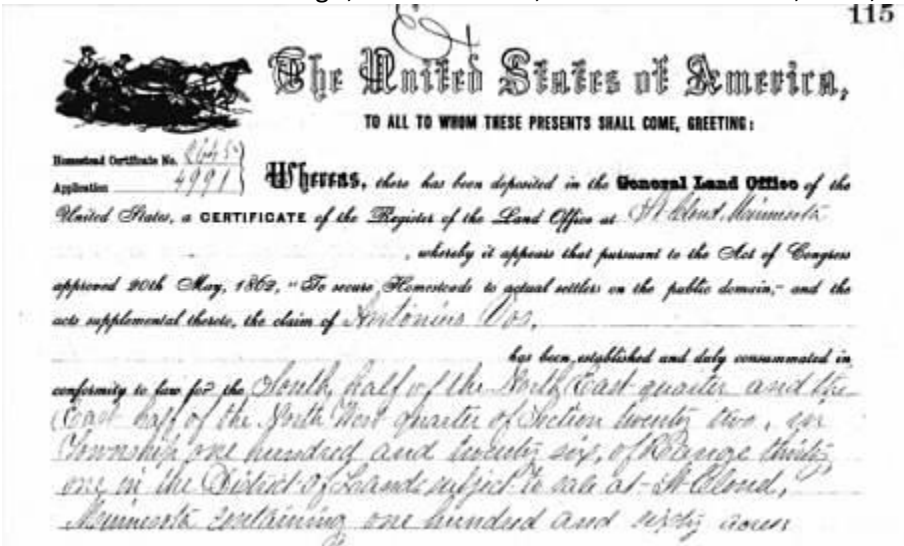 115
The United States of America,
TO ALL TO WHOM THESE PRESENTS SHALL COME, GREETING:
Homestead Certificate No. 2645
Application 4991
Whereas, there has been deposited in the General Land Office of the
United States, a CERTIFICATE of the Register of the Land Office at St Cloud, Minnesota
, whereby it appears that pursuant to the Act of Congress
approved 20th May, 1862, "To secure Homesteads to actual settlers on the public domain," and the
acts supplemental thereto, the claim of Antonius Vos,
has been established and duly consummated in
conformity to law for the South half of the North East quarter and the
East half of the North West quarter of Section twenty two, in
Township one hundred and twenty six, of Range thirty
one in the District of Lands subject to sale at St Cloud,
Minnesota containing one hundred and sixty acres